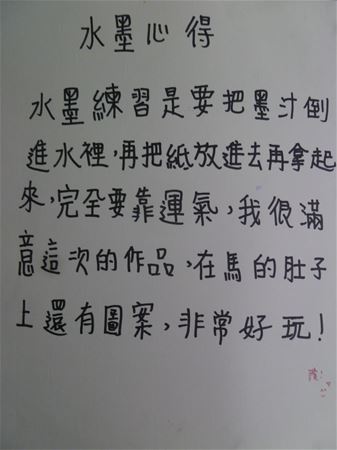 水墨心得
水墨練習是要把墨汁倒
進水裡，再把紙放進去再拿起
來，完全要靠運氣，我很滿
意這次的作品，在馬的肚子
上還有圖案，非常好玩！